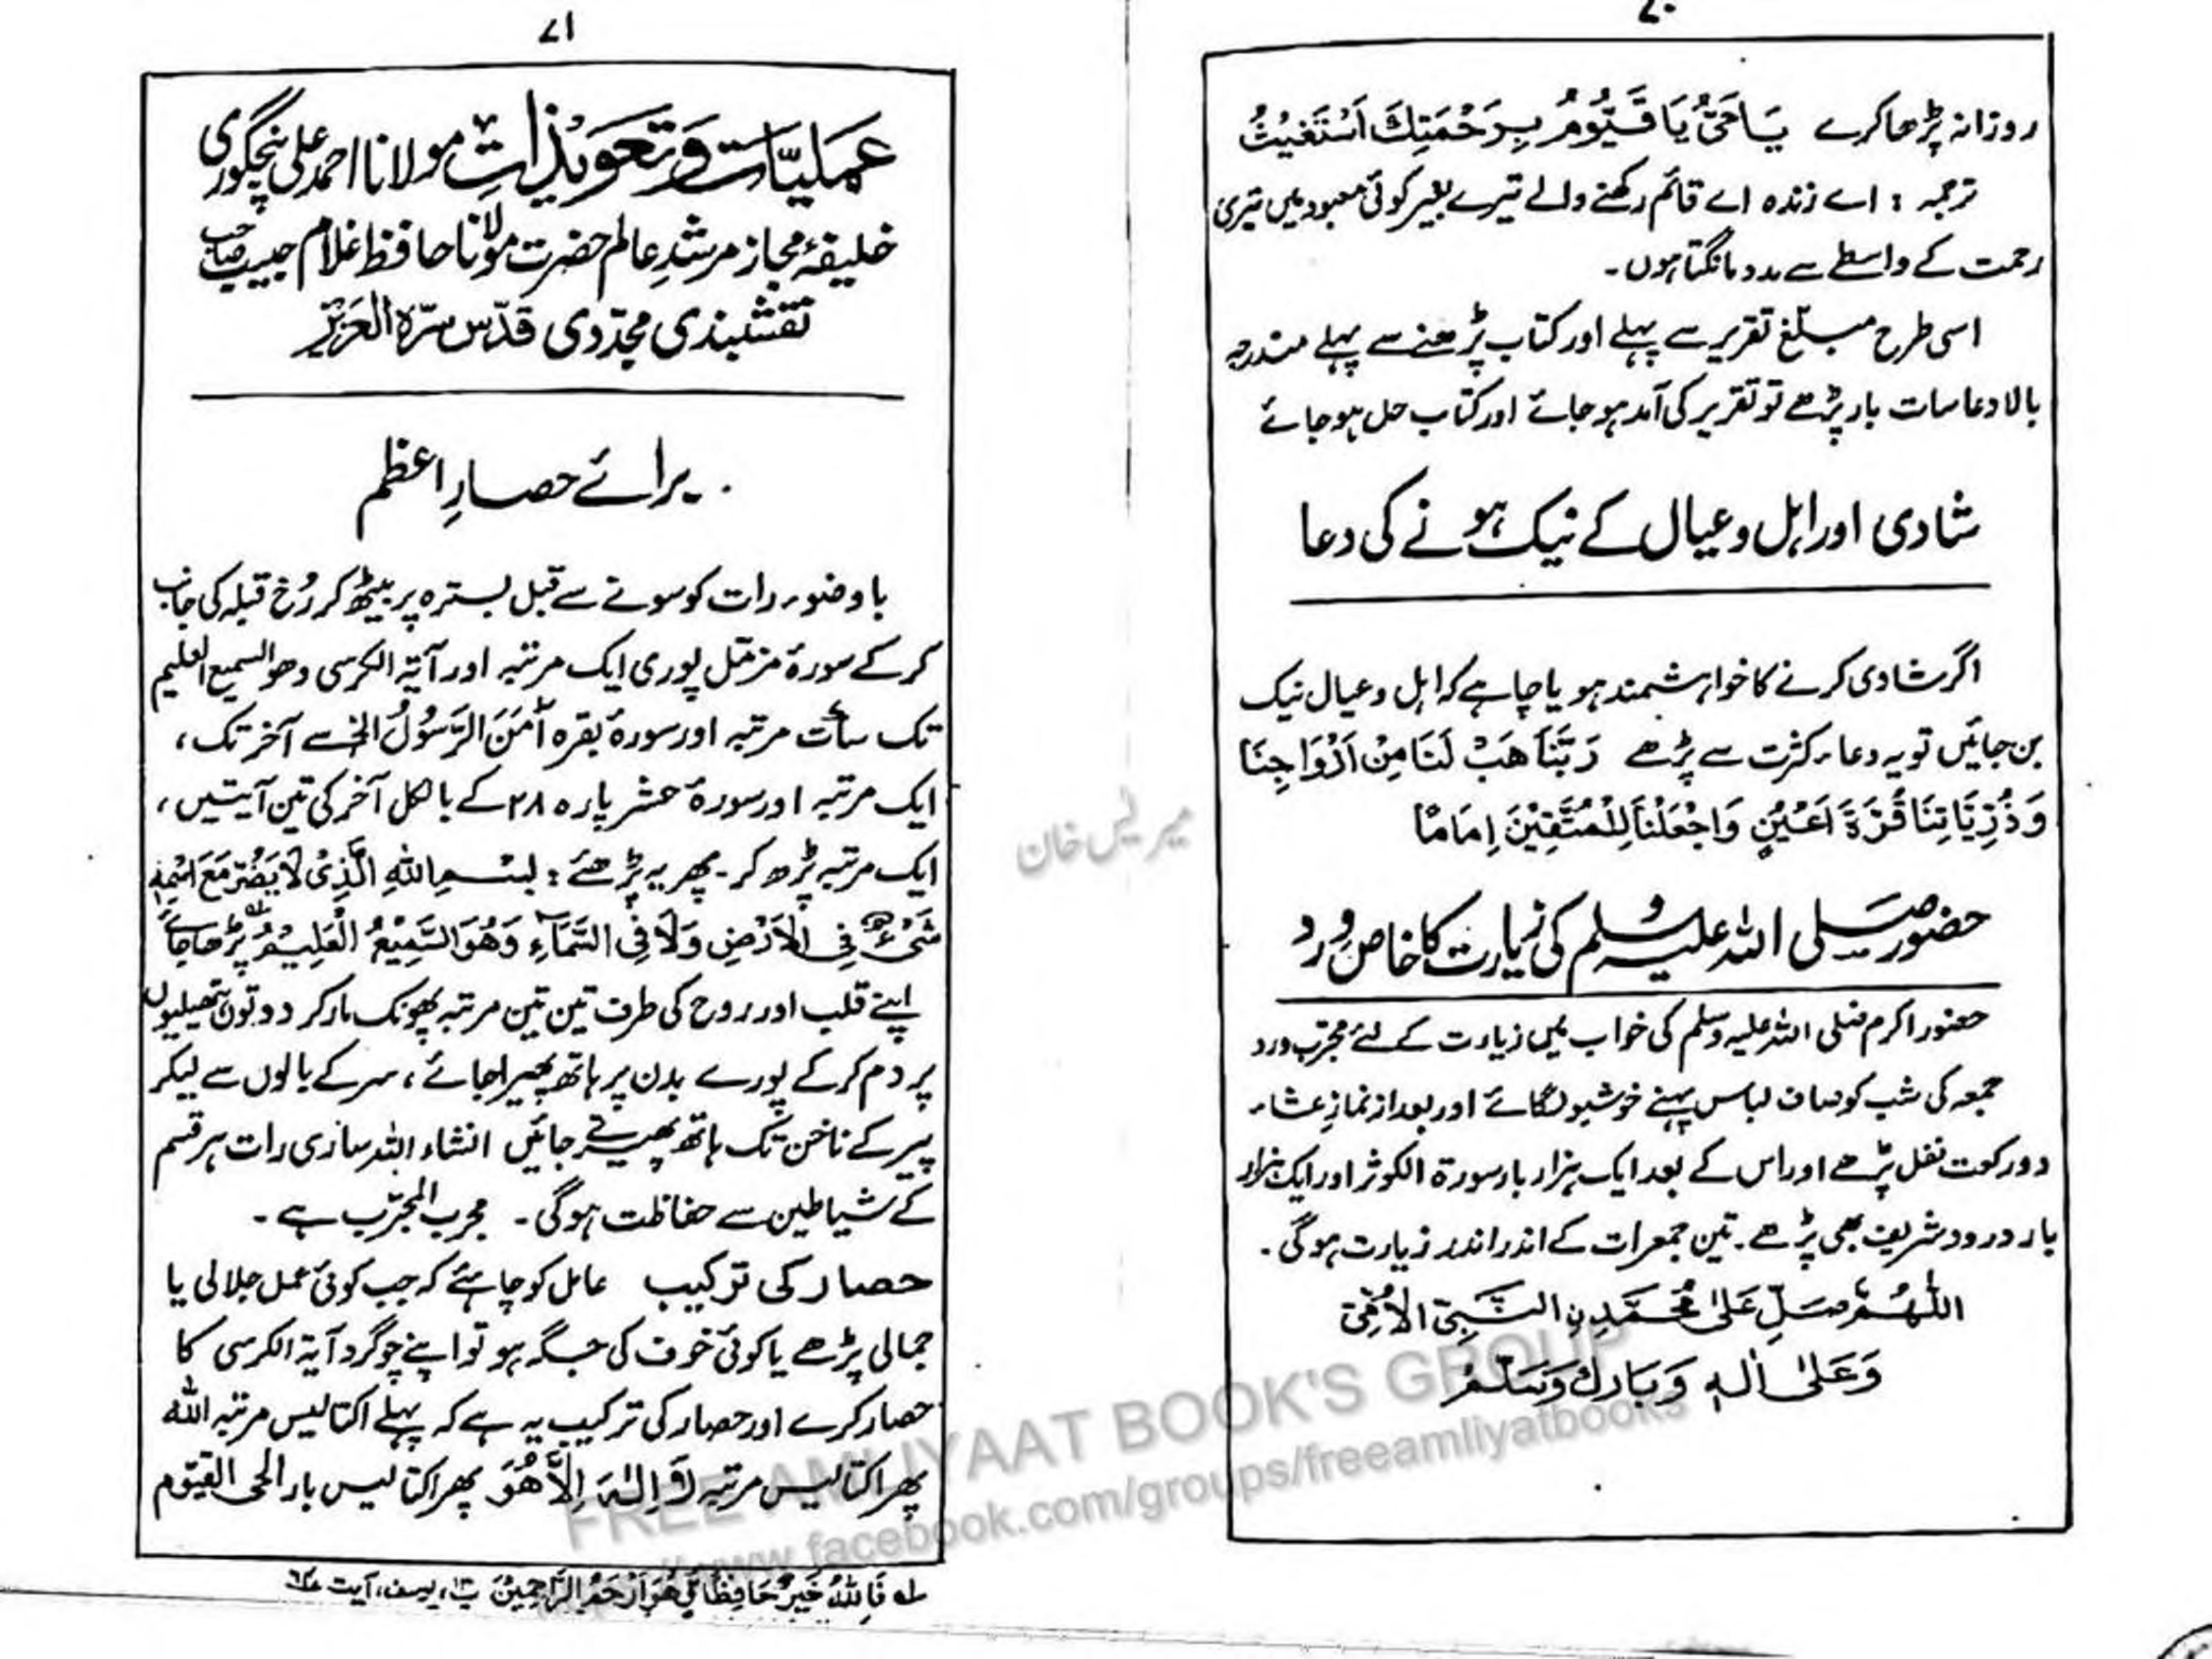 ۷۰
روزانہ پڑھا کرے يَاحَيُّ يَا قَيُّوْمُ بِرَحْمَتِكَ اَسْتَغِيْثُ
ترجمہ : اے زندہ اے قائم رکھنے والے تیرے بغیر کوئی معبود نہیں تیری
رحمت کے واسطے سے مدد مانگتا ہوں۔
اسی طرح مبلّغ تقریر سے پہلے اور کتاب پڑھنے سے پہلے مندرجہ
بالا دعا سات بار پڑھے تو تقریر کی آمد ہو جائے اور کتاب حل ہو جائے
شادی اور اہل و عیال کے نیک ہونے کی دعا
اگر شادی کرنے کا خواہشمند ہو یا چاہے کہ اہل و عیال نیک
بن جائیں تو یہ دعاء کثرت سے پڑھے رَبَّنَا هَبْ لَنَا مِنْ اَزْوَاجِنَا
وَذُرِّيَّاتِنَا قُرَّةَ اَعْيُنٍ وَاجْعَلْنَا لِلْمُتَّقِيْنَ اِمَامًا
حضور صلی اللہ علیہ وسلم کی زیارت کا خاص ورد
حضور اکرم صلی اللہ علیہ وسلم کی خواب میں زیارت کے لئے مجرّب ورد
جمعہ کی شب کو صاف لباس پہنے خوشبو لگائے اور بعد از نمازِ عشاء
دو رکعت نفل پڑھے اور اس کے بعد ایک ہزار بار سورۃ الکوثر اور ایک ہزار
بار درود شریف بھی پڑھے۔ تین جمعرات کے اندر اندر زیارت ہوگی۔
اَللّٰهُمَّ صَلِّ عَلٰى مُحَمَّدِنِ النَّبِيِّ الْاُمِّيِّ
وَعَلٰى اٰلِهٖ وَبَارِكْ وَسَلِّمْ
۷۱
عَمَلِیَّات وَتَعَوِیْذَاتِ مولانا احمد علی پنجگوری
خلیفۂ مجاز مرشدِ عالم حضرت مولانا حافظ غلام حبیب صاحب
نقشبندی مجدّدی قدّس سرّہ العزیز
برائے حصارِ اعظم
باوضو رات کو سونے سے قبل بسترہ پر بیٹھ کر رُخ قبلہ کی جانب
کر کے سورۂ مزمّل پوری ایک مرتبہ اور آیۃ الکرسی وھو السمیع العلیم
تک سات مرتبہ اور سورۂ بقرہ اٰمَنَ الرَّسُوْلُ الخ سے آخر تک،
ایک مرتبہ اور سورۂ حشر پارہ ۲۸ کے بالکل آخر کی تین آیتیں،
ایک مرتبہ پڑھ کر۔ پھر یہ پڑھئے : بِسْمِ اللّٰهِ الَّذِىْ لَا يَضُرُّ مَعَ اسْمِهٖ
شَىْءٌ فِى الْاَرْضِ وَلَا فِى السَّمَآءِ وَهُوَ السَّمِيْعُ الْعَلِيْمُ پڑھا جائے
اپنے قلب اور روح کی طرف تین تین مرتبہ پھونک مار کر دونوں ہتھیلیوں
پر دم کر کے پورے بدن پر ہاتھ پھیرا جائے، سر کے بالوں سے لیکر
پیر کے ناخن تک ہاتھ پھیرتے جائیں انشاء اللہ ساری رات ہر قسم
کے شیاطین سے حفاظت ہوگی۔ مجرب المجرّب ہے۔
حصار کی ترکیب عامل کو چاہئے کہ جب کوئی عمل جلالی یا
جمالی پڑھے یا کوئی خوف کی جگہ ہو تو اپنے چوگرد آیۃ الکرسی کا
حصار کرے اور حصار کی ترکیب یہ ہے کہ پہلے اکتالیس مرتبہ اللّٰہ
پھر اکتالیس مرتبہ لَآ اِلٰهَ اِلَّا هُوَ پھر اکتالیس بار الحی القیّوم
لہ فَاللّٰهُ خَيْرٌ حَافِظًا وَّهُوَ اَرْحَمُ الرَّاحِمِيْنَ پ۱۳، یوسف، آیت ۶۴
FREE AMLIYAAT BOOK'S GROUP
www.facebook.com/groups/freeamliyatbooks